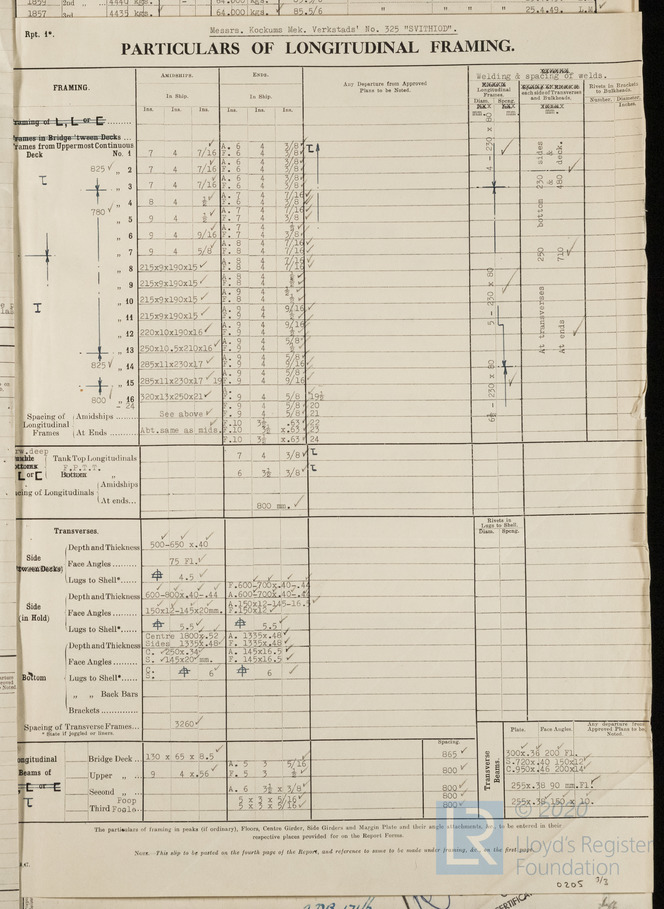 1859 2nd " 4440 kgs. 64.000 kgs. 85.5/6
1857 3rd " 4435 kgs. 64.000 kgs. 85.5/6 " " " 25.4.49. L.R.
Rpt. 1*.
Messrs. Kockums Mek. Verkstads' No. 325 "SVITHIOD".
PARTICULARS OF LONGITUDINAL FRAMING.
FRAMING.
AMIDSHIPS.
In Ship.
Ins. Ins. Ins.
ENDS.
In Ship.
Ins. Ins. Ins.
Any Departure from Approved
Place to be Noted.
Welding & spacing of welds.
Longitudinal
Frames.
Diam. Spcng.
each side of Transverses
and Bulkheads.
Rivets in Brackets
to Bulkheads.
Number. Diameter.
Inches.
Framing of L, L or C
Frames in Bridge 'tween Decks
Frames from Uppermost Continuous
Deck No. 1 7 4 7/16 A. 6 4 3/8
F. 6 4 3/8
825 " 2 7 4 7/16 A. 6 4 3/8
F. 6 4 3/8
" 3 7 4 7/16 A. 6 4 3/8
F. 6 4 3/8
" 4 8 4 ½ A. 7 4 7/16
F. 6 4 3/8
780 " 5 9 4 ½ A. 7 4 7/16
F. 7 4 3/8
" 6 9 4 9/16 A. 7 4 ½
F. 7 4 3/8
" 7 9 4 5/8 A. 8 4 7/16
F. 8 4 7/16
" 8 215x9x190x15 A. 8 4 ½
F. 8 4 7/16
" 9 215x9x190x15 A. 8 4 ½
F. 8 4 ½
" 10 215x9x190x15 A. 9 4 ½
F. 8 4 ½
" 11 215x9x190x15 A. 9 4 9/16
F. 9 4 ½
" 12 220x10x190x16 A. 9 4 9/16
F. 9 4 ½
" 13 250x10.5x210x16 A. 9 4 5/8
F. 9 4 ½
825 " 14 285x11x230x17 A. 9 4 5/8
F. 9 4 9/16
" 15 285x11x230x17 19 A. 9 4 5/8
F. 9 4 9/16
800 " 16 320x13x250x21 A. 9 4 5/8 19½
- 24 F. 9 4 5/8 20
4 - 230 x 80
5 - 230 x 80
6½ - 230 x 80
At transverses 250 bottom 230 sides
&
At ends 710 & 480 deck.
Spacing of
Longitudinal
Frames
Amidships See above F. 9 4 5/8 21
F.10 3½ .63 22
At Ends Abt.same as mids. F.10 3½ x.63 23
F.10 3½ x.63 24
Tank Top Longitudinals 7 4 3/8
F.P.T.T.
Bottom " 6 3½ 3/8
Spacing of Longitudinals
Amidships
At ends... 800 mm.
Transverses.
Rivets in
Lugs to Shell.
Diam. Spcng.
Side
'tween Decks
Depth and Thickness 500-650 x.40
Face Angles 75 Fl.
Lugs to Shell*...... 4.5
Side
(in Hold)
Depth and Thickness 600-800x.40-.44 F.600-700x.40-.44
A.600-700x.40-.44
Face Angles 150x12-145x20mm. A.150x12-145-16.5
F.150x12
Lugs to Shell*...... 5.5 5.5
Bottom
Depth and Thickness Centre 1800x.52 A. 1335x.48
Sides 1335x.48 F. 1335x.48
Face Angles C. 250x.34 A. 145x16.5
S. 145x20 mm. F. 145x16.5
Lugs to Shell*...... C.
S. 6 6
" " Back Bars
Brackets
Spacing of Transverse Frames... 3260
* State if joggled or liners.
Longitudinal
Beams of
Bridge Deck 130 x 65 x 8.5
Upper " 9 4 x.56 A. 5 3 5/16
F. 5 3 ½
Second " A. 6 3½ x 3/8
Poop 5 x 3 x 5/16
Third Foc'le 5 x 3 x 5/16
Spacing.
865
800
800
800
800
Transverse
Beams.
Plate. Face Angles. Any departure from
Approved Plans to be
Noted.
300x.36 200 Fl.
S.720x.40 150x12
C.950x.46 200x14
255x.38 90 mm.Fl.
255x.38 150 x 10.
The particulars of framing in peaks (if ordinary), Floors, Centre Girder, Side Girders and Margin Plate and their angle attachments, &c., to be entered in their
respective places provided for on the Report Forms.
NOTE. This slip to be posted on the fourth page of the Report, and reference to same to be made under framing, &c., on the first page.
© 2020
LR
Lloyd's Register
Foundation
0205 3/3